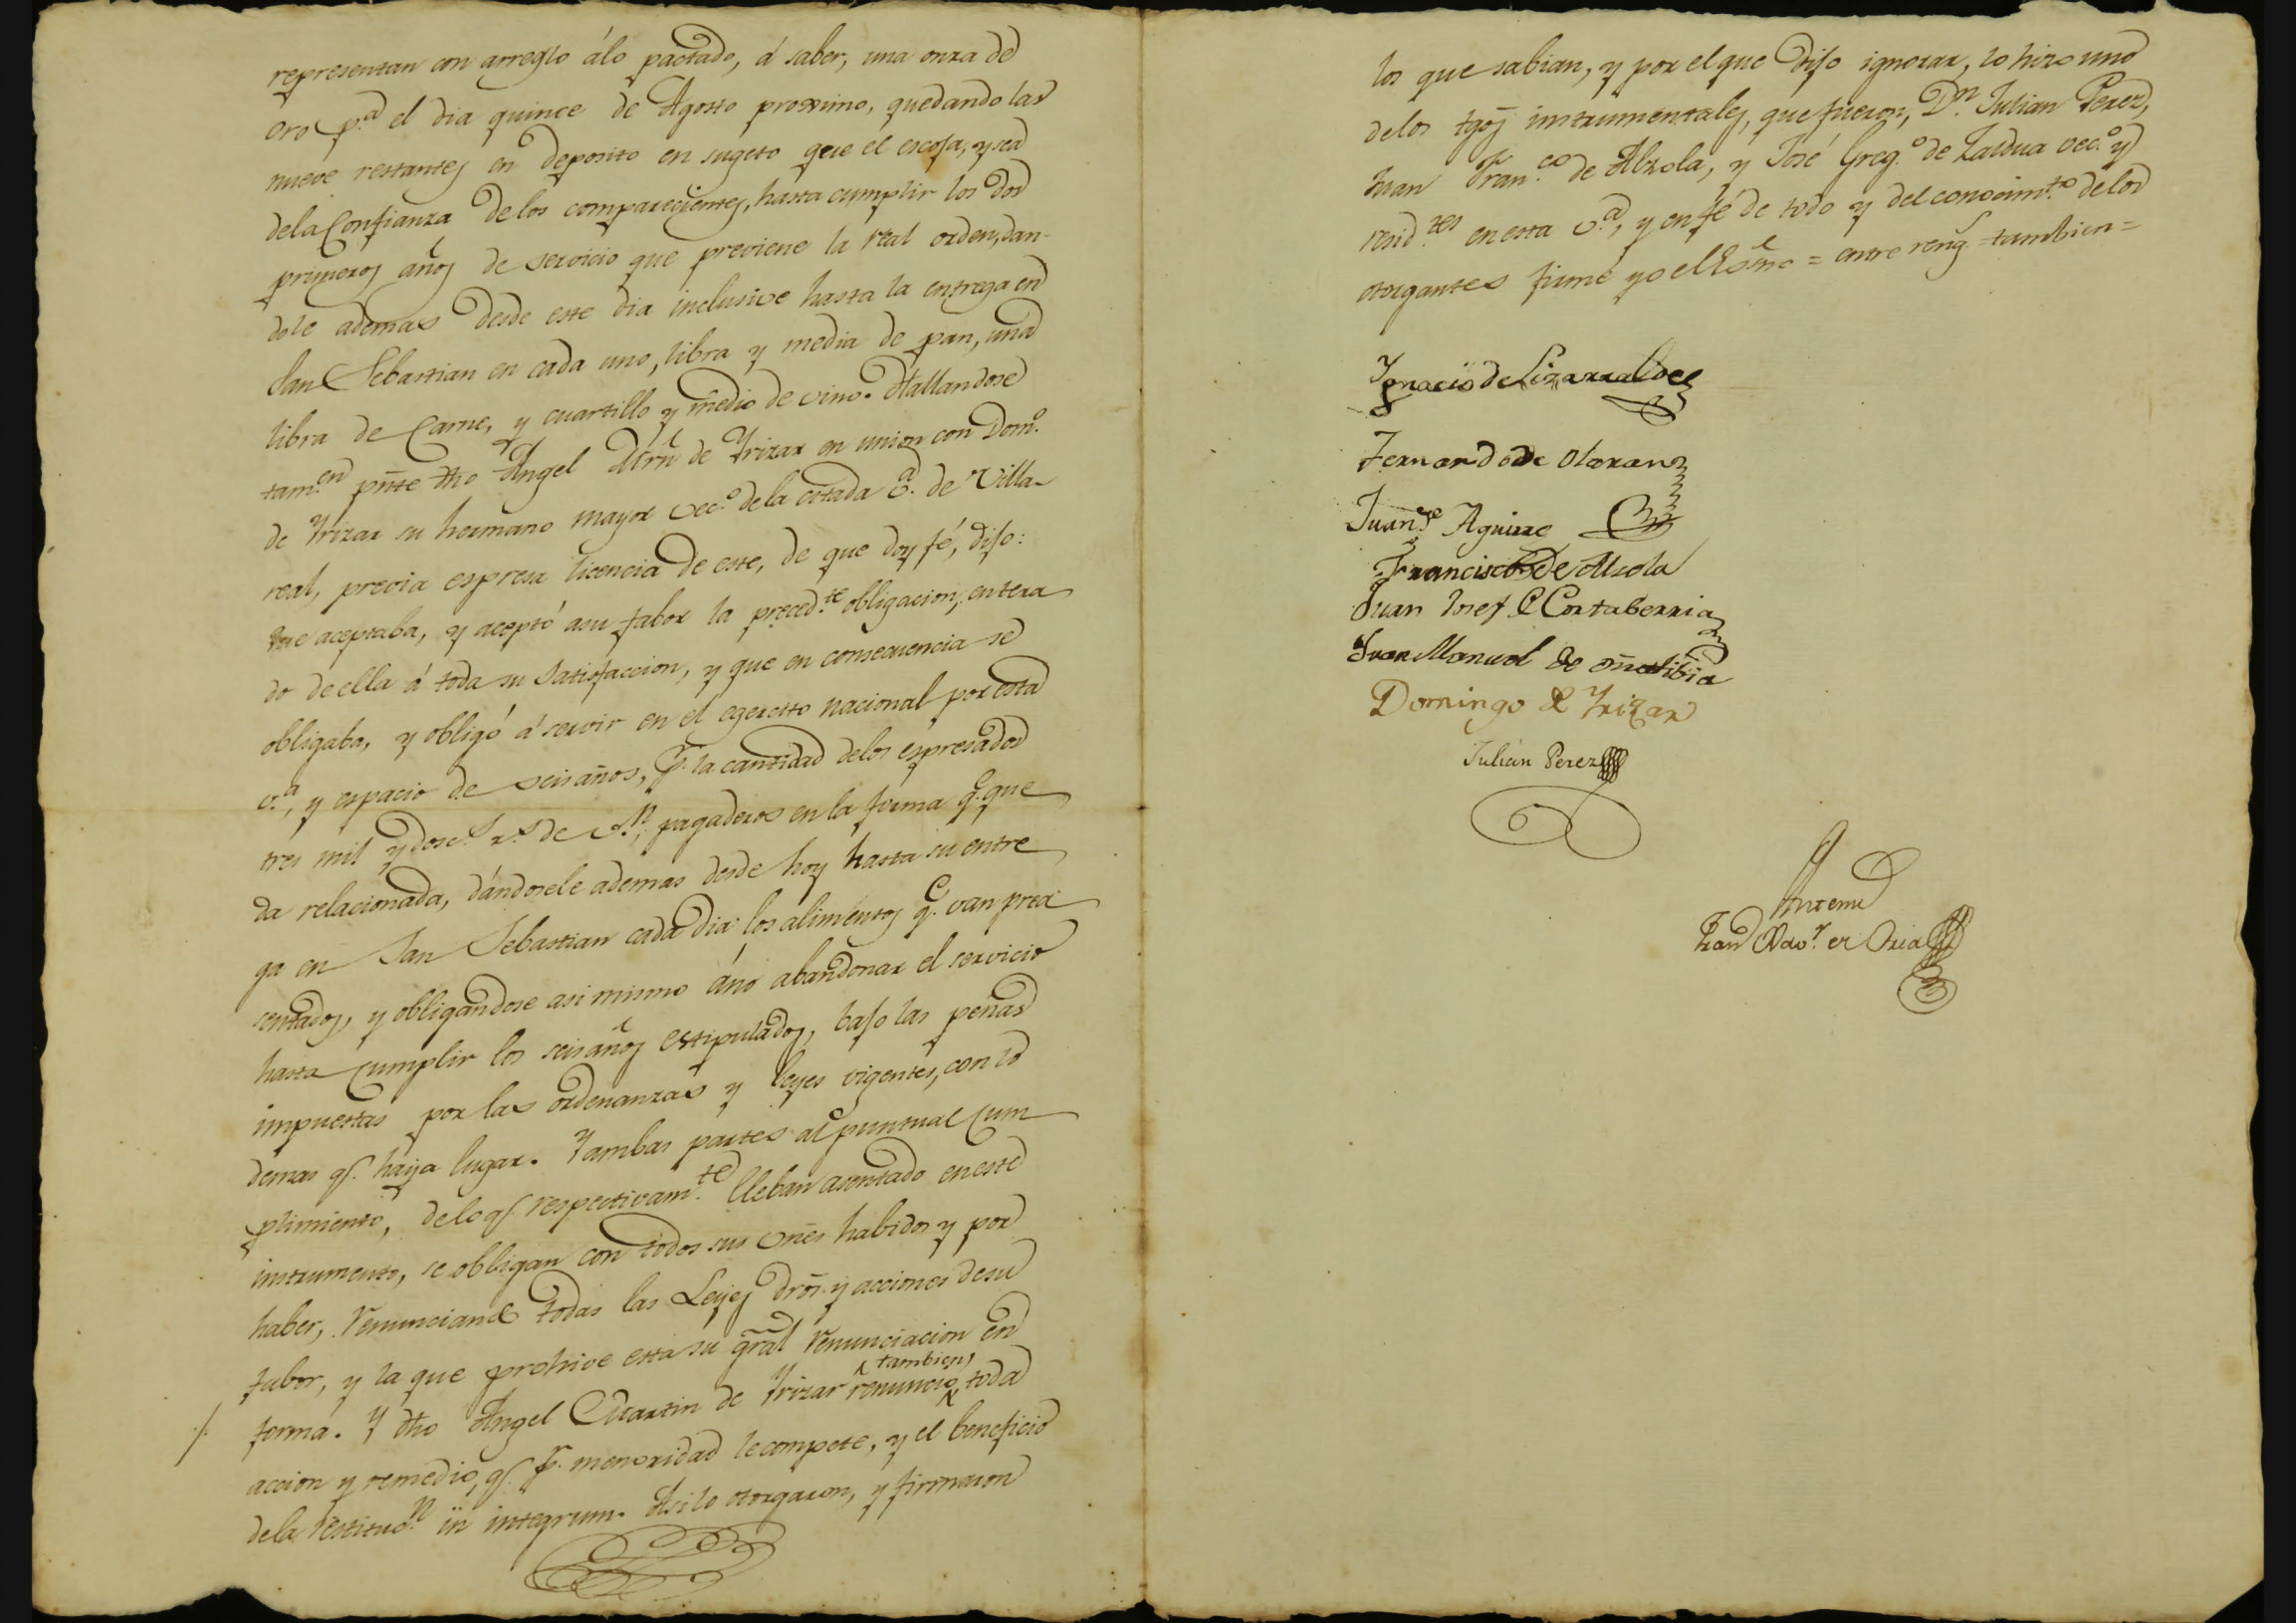 representan con arreglo álo pactado, á saber, una onza de
oro p.ª el dia quince de Agosto proximo, quedando las
nueve restantes en deposito en sugeto que él escoja, y sea
dela Confianza delos comparecientes, hasta cumplir los dos
primeros años de servicio que previene la real orden, dan-
dole ademas desde este dia inclusive hasta la entrega en
San Sebastian en cada uno, libra y media de pan, una
libra de Carne, y cuartillo y medio de vino. Hallandose
tam.en pñte dho Angel Mrñ de Yrizar en union con Dom.º
de Yrizar su hermano mayor vec.º dela citada v.ª de Villa-
real, previa espresa licencia de este, de que doy fé, dijo:
que aceptaba, y aceptó asu fabor la preced.te obligacion, entera
do de ella á toda su satisfaccion, y que en consecuencia se
obligaba, y obligó á servir en el egercito nacional por esta
v.ª, y espacio de seis años, p.r la cantidad delos espresados
tres mil y dosc.s r.s de v.n, pagaderos en la forma q.e que
da relacionada, dándosele ademas desde hoy hasta su entre
ga en San Sebastian cada dia los alimentos q.e van prea
sentados, y obligandose asi mismo áno abandonar el servicio
hasta cumplir los seis años estipulados, bajo las penas
impuestas por las ordenanzas y leyes vigentes, con lo
demas q.e haya lugar. Y ambas partes al puntual cum
plimiento, delo q.e respectivam.te lleban asentado en este
instrumento, se obligan con todos sus vñes habidos y por
haber, renunciando todas las Leyes drõs y acciones desu
fabor, y la que prohive esta su gral renunciacion en
forma. Y dho Angel Martin de Yrizar renuncio ^también^ toda
accion y remedio, q.e p.r menoridad lecompete, y el beneficio
dela restituc.n in integrum. Asi lo otorgaron, y firmaron
los que sabian, y por el que dijo ignorar, lo hizo uno
delos tgos instrumentales, que fueron, D.n Julian Perez,
Juan Fran.co de Alzola, y José Greg.º de Zaldua vec.º y
resid.tes en esta v.ª, y en fé de todo y del conocim.to delos
otorgantes firmé yo el Esño = entre reng.s = tambien =
Ygnacio de Lizarralde
Fernando de Olaran
Juan J.e Aguirre
Francisco de Alzola
Juan Josef e Cortaberria
Juan Manuel de oñatibia
Domingo de Yrizar
Julián Perez
Antemi